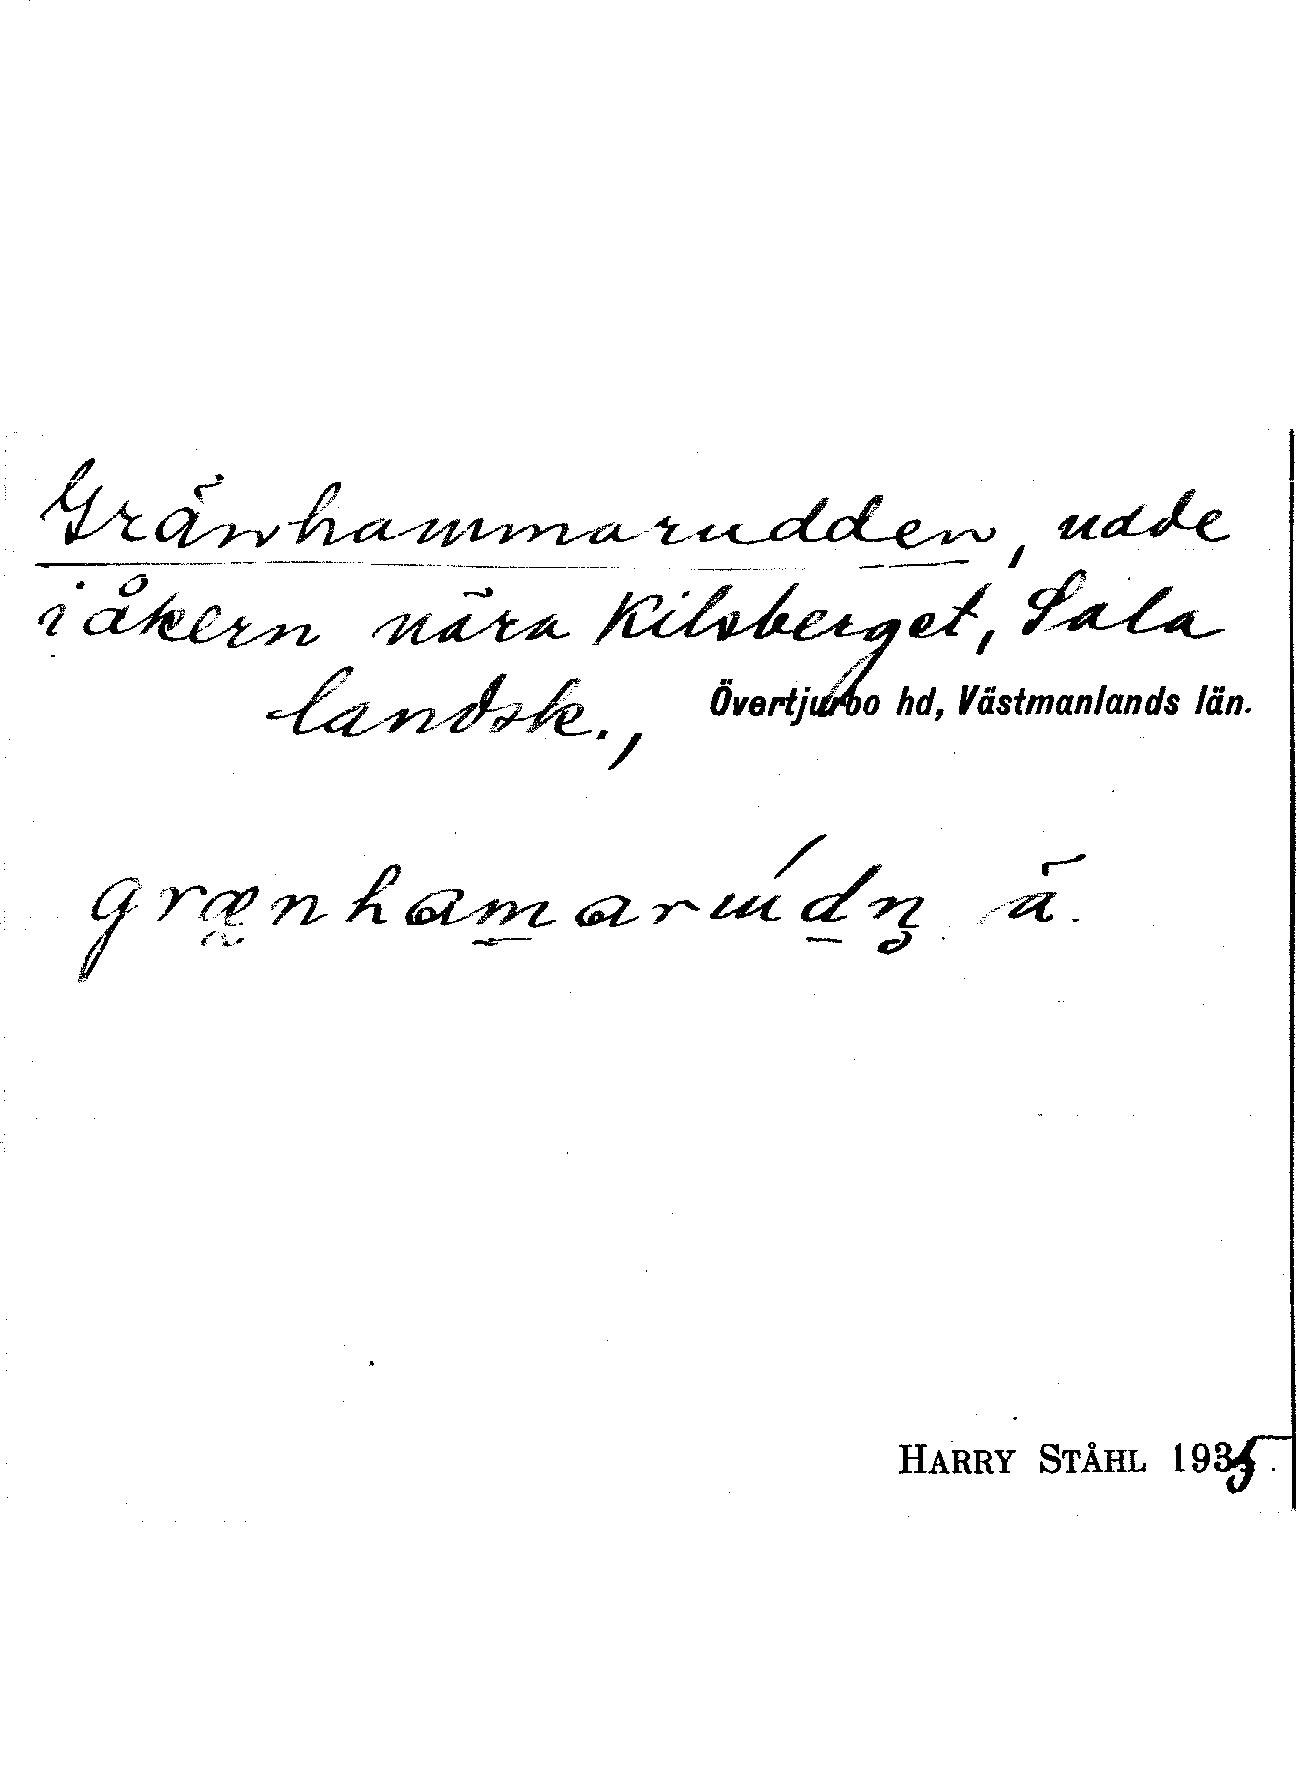 Gränhammarudden, udde
i åkern nära Kilsberget, Sala
landsk., Övertjurbo hd, Västmanlands län.
grænhamarúdn̥ ä.
HARRY STÅHL 1935.